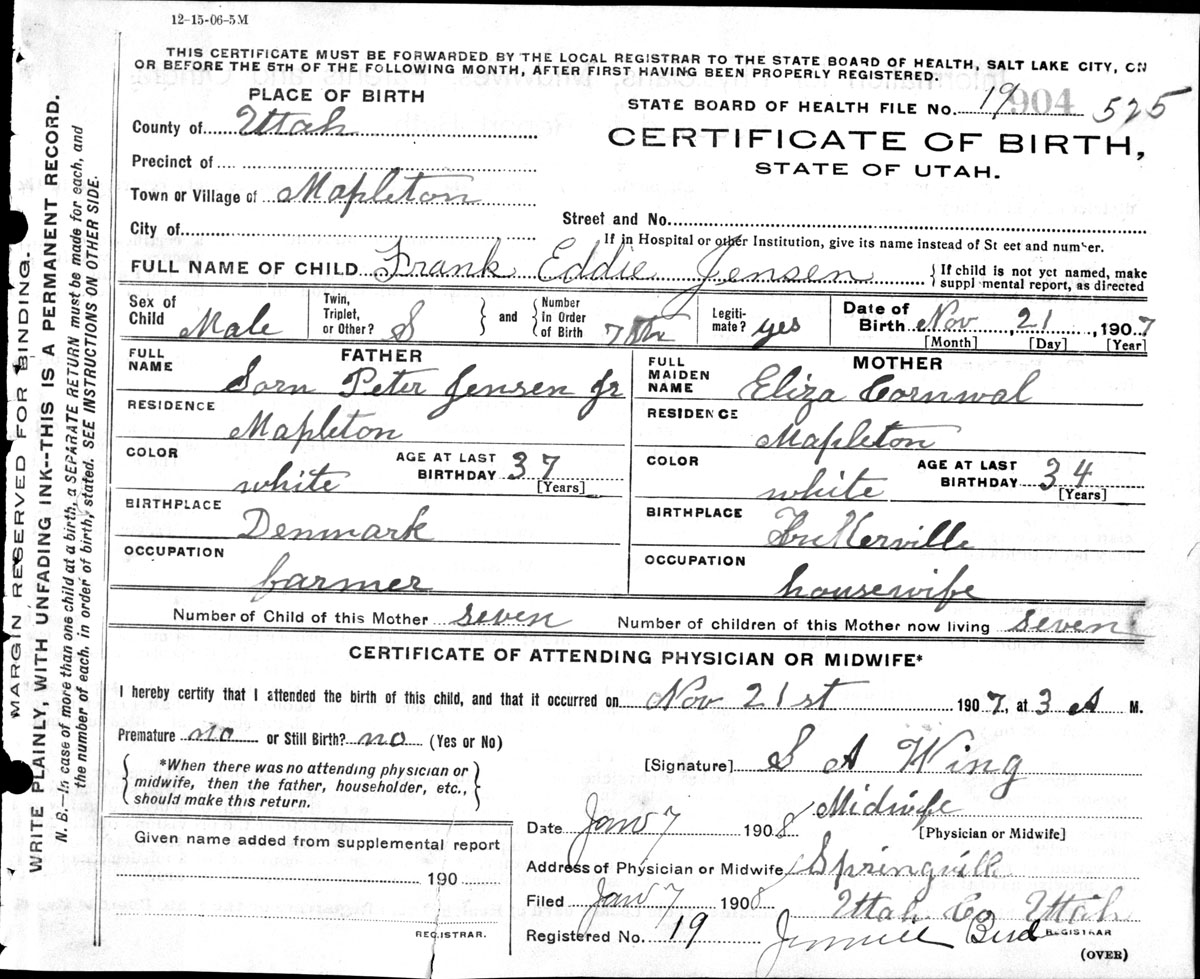 12-15-06-5M
THIS CERTIFICATE MUST BE FORWARDED BY THE LOCAL REGISTRAR TO THE STATE BOARD OF HEALTH, SALT LAKE CITY, ON
OR BEFORE THE 5TH OF THE FOLLOWING MONTH, AFTER FIRST HAVING BEEN PROPERLY REGISTERED.
PLACE OF BIRTH
STATE BOARD OF HEALTH FILE No. 19 904 525
County of Utah
CERTIFICATE OF BIRTH,
STATE OF UTAH.
Precinct of
Town or Village of Mapleton
Street and No.
City of
If in Hospital or other Institution, give its name instead of St eet and number.
FULL NAME OF CHILD Frank Eddie Jensen
{ If child is not yet named, make
suppl mental report, as directed
Sex of Child Male
Twin, Triplet, or Other? S } and { Number in Order of Birth 7th
Legiti-mate? yes
Date of Birth Nov 21, 1907
[Month] [Day] [Year]
FATHER
FULL NAME Sorn Peter Jensen Jr
RESIDENCE
Mapleton
COLOR white
AGE AT LAST BIRTHDAY 37
[Years]
BIRTHPLACE
Denmark
OCCUPATION
farmer
MOTHER
FULL MAIDEN NAME Eliza Cornwal
RESIDENCE
Mapleton
COLOR white
AGE AT LAST BIRTHDAY 34
[Years]
BIRTHPLACE
OCCUPATION
housewife
Number of Child of this Mother seven
Number of children of this Mother now living seven
CERTIFICATE OF ATTENDING PHYSICIAN OR MIDWIFE*
I hereby certify that I attended the birth of this child, and that it occurred on Nov 21st 1907, at 3 A M.
Premature no or Still Birth? no (Yes or No)
{ *When there was no attending physician or
midwife, then the father, householder, etc.,
should make this return. }
[Signature] S A Wing
Midwife
[Physician or Midwife]
Date Jan 7 1908
Given name added from supplemental report
190
REGISTRAR.
Address of Physician or Midwife Springville
Filed Jan 7 1908 Utah Co Utah
Registered No. 19 Bird REGISTRAR
(OVER)
MARGIN RESERVED FOR BINDING.
WRITE PLAINLY, WITH UNFADING INK--THIS IS A PERMANENT RECORD.
N. B.—In case of more than one child at a birth, a SEPARATE RETURN must be made for each, and
the number of each, in order of birth, stated. SEE INSTRUCTIONS ON OTHER SIDE.